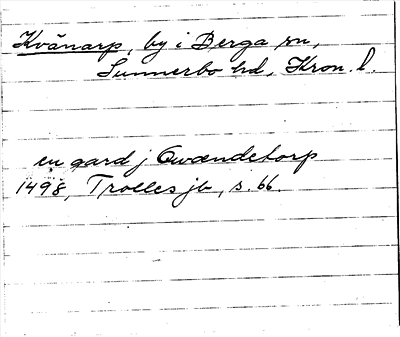 Kvänarp, by i Berga sn,
Sunnerbo hd, Kron. l.
en gard j Qwændetorp
1498, Trolles jb, s. 66.